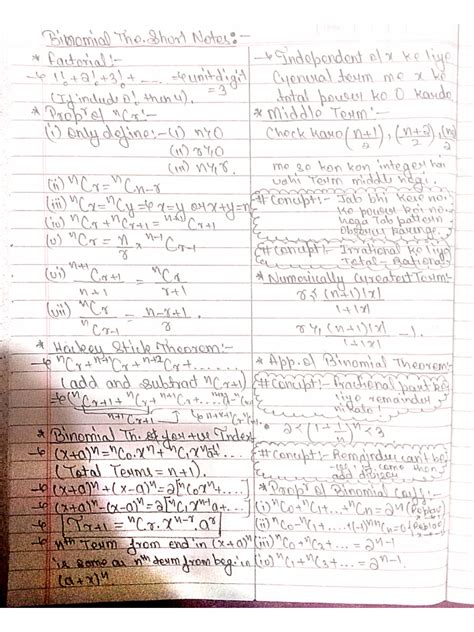 Binomial The. Short Notes:-
* Factorial:-
→ 1! + 2! + 3! + ..... → unit digit = 3
(If include 0! then 4).
* Prop of nCr:-
(i) only define:- (i) n≥0
(ii) r≥0
(iii) n≥r.
(ii) nCr = nCn-r
(iii) nCx = nCy ⇒ x=y or x+y=n
(iv) nCr + nCr+1 = n+1Cr+1
(v) nCr = n/r n-1Cr-1
(vi) n+1Cr+1 / n+1 = nCr / r+1
(vii) nCr / nCr-1 = n-r+1 / r.
* Hockey Stick Theorem:-
→ nCr + n+1Cr + n+2Cr + .......
(add and subtract nCr+1)
n+1Cr+1
* Binomial Th. of you +ve Index
→ (x+a)^n = nC0 x^n + nC1 x^n-1 ...
(Total Terms = n+1).
→ (x+a)^n + (x-a)^n = 2[nC0 x^n + ....]
→ (x+a)^n - (x-a)^n = 2[nC1 x^n-1 a + ...]
→ Tr+1 = nCr. x^n-r. a^r
→ nth Term from end in (x+a)^n
is same as nth term from beg. in
(a+x)^n
→ Independent of x ke liye
General term me x ke
total power ko 0 kardo
* Middle Term:-
Check karo (n+1)/2, (n+2)/2,
me se kon kon integer hai
wahi Term middle hogi.
# Concept:- Jab bhi koie no.
ke power koi no.
hoga Tab pattern
observe karenge.
# Concept:- Irrational ke liye
Total - Rational
* Numerically Greatest Term:-
r ≤ (n+1)|x| / 1+|x|
r ≥ (n+1)|x| / 1+|x| - 1.
* App. of Binomial Theorem:-
# Concept:- Fractional part ke
liye remainder
nikalo!
• 2 < (1+1/n)^n < 3
# Concept:- Remainder can't be
-ve, if came then
add divisor
* Prop of Binomial Coeff:-
(i) nC0 + nC1 + ... + nCn = 2^n
(ii) nC0 - nC1 + .... (-1)^n nCn = 0
(iii) nC0 + nC2 + ... = 2^n-1
(iv) nC1 + nC3 + ... = 2^n-1.